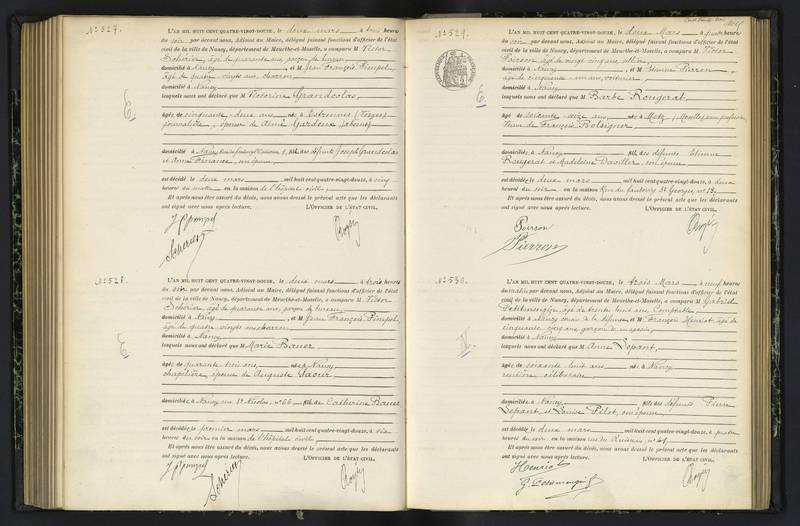 N° 527.
L'AN MIL HUIT CENT QUATRE-VINGT-DOUZE, le deux mars à trois heures
du soir, par devant nous, Adjoint au Maire, délégué faisant fonctions d'officier de l'état
civil de la ville de Nancy, département de Meurthe-et-Moselle, a comparu M. Victor
Schérier, âgé de quarante ans, garçon de bureau
domicilié à Nancy, et M. Jean François Pimpel,
âgé de quatre-vingts ans, charron
domicilié à Nancy
lesquels nous ont déclaré que M. Victorine Grandcolas,
âgée de cinquante-deux ans née à Estrennes (Vosges)
journalière, épouse de Aimé Gardeux, absent
domicilié à Nancy, fille des défunts Joseph Grandcolas
et Anne Finance, son épouse
est décédé le deux mars mil huit cent quatre-vingt-douze, à cinq
heures du matin en la maison de l'hôpital civil,
Et après nous être assuré du décès, nous avons dressé le présent acte que les déclarants
ont signé avec nous après lecture. L'OFFICIER DE L'ÉTAT CIVIL,
N° 528.
L'AN MIL HUIT CENT QUATRE-VINGT-DOUZE, le deux mars à trois heures
du soir par devant nous, Adjoint au Maire, délégué faisant fonctions d'officier de l'état
civil de la ville de Nancy, département de Meurthe-et-Moselle, a comparu M. Victor
Schérier, âgé de quarante ans, garçon de bureau
domicilié à Nancy, et M. Jean François Pimpel,
âgé de quatre-vingts ans charron
domicilié à Nancy
lesquels nous ont déclaré que M. Marie Bauer
âgée de quarante trois ans, née à Nancy
chapelière épouse de Auguste Saour
domicilié à Nancy rue St Nicolas, n° 66 fille de Catherine Bauer
est décédé le premier mars mil huit cent quatre-vingt-douze, à six
heures du soir en la maison de l'hôpital civil,
Et après nous être assuré du décès, nous avons dressé le présent acte que les déclarants
ont signé avec nous après lecture. L'OFFICIER DE L'ÉTAT CIVIL,
N° 529.
L'AN MIL HUIT CENT QUATRE-VINGT-DOUZE, le deux Mars à quatre heures
du soir par devant nous, Adjoint au Maire, délégué faisant fonctions d'officier de l'état
civil de la ville de Nancy, département de Meurthe-et-Moselle, a comparu M. Victor
Poirson âgé de vingt cinq ans
domicilié à Nancy, et M. Etienne Pierron,
âgé de cinquante-un ans, voiturier
domicilié à Nancy
lesquels nous ont déclaré que M. Barbe Rougerat,
âgée de soixante-seize ans née à Metz (Moselle) sans profession
Veuve de François Bolsigner
domicilié à Nancy fille des défunts Etienne
Rougerat et Madeleine Daviller son épouse
est décédé le deux mars mil huit cent quatre-vingt-douze, à deux
heures du soir en la maison Rue du faubourg St Georges n° 13.
Et après nous être assuré du décès, nous avons dressé le présent acte que les déclarants
ont signé avec nous après lecture. L'OFFICIER DE L'ÉTAT CIVIL,
Poirson
Pierron
N° 530.
L'AN MIL HUIT CENT QUATRE-VINGT-DOUZE, le trois Mars à neuf heures
du matin par devant nous, Adjoint au Maire, délégué faisant fonctions d'officier de l'état
civil de la ville de Nancy, département de Meurthe-et-Moselle, a comparu M. Gabriel
âgé de trente huit ans Comptable
domicilié à Nancy à la défunte et M. François Henriot âgé de
cinquante cinq ans garçon de magasin
domicilié à Nancy
lesquels nous ont déclaré que M. Anne Lepant,
âgée de soixante huit ans née à Nancy
rentière célibataire
domicilié à Nancy fille des défunts Pierre
Lepant, et Louise Pilot, son épouse
est décédé le deux mars mil huit cent quatre-vingt-douze, à quatre
heures du soir en la maison rue du Ruisseau, n° 41
Et après nous être assuré du décès, nous avons dressé le présent acte que les déclarants
ont signé avec nous après lecture. L'OFFICIER DE L'ÉTAT CIVIL,
Henriot